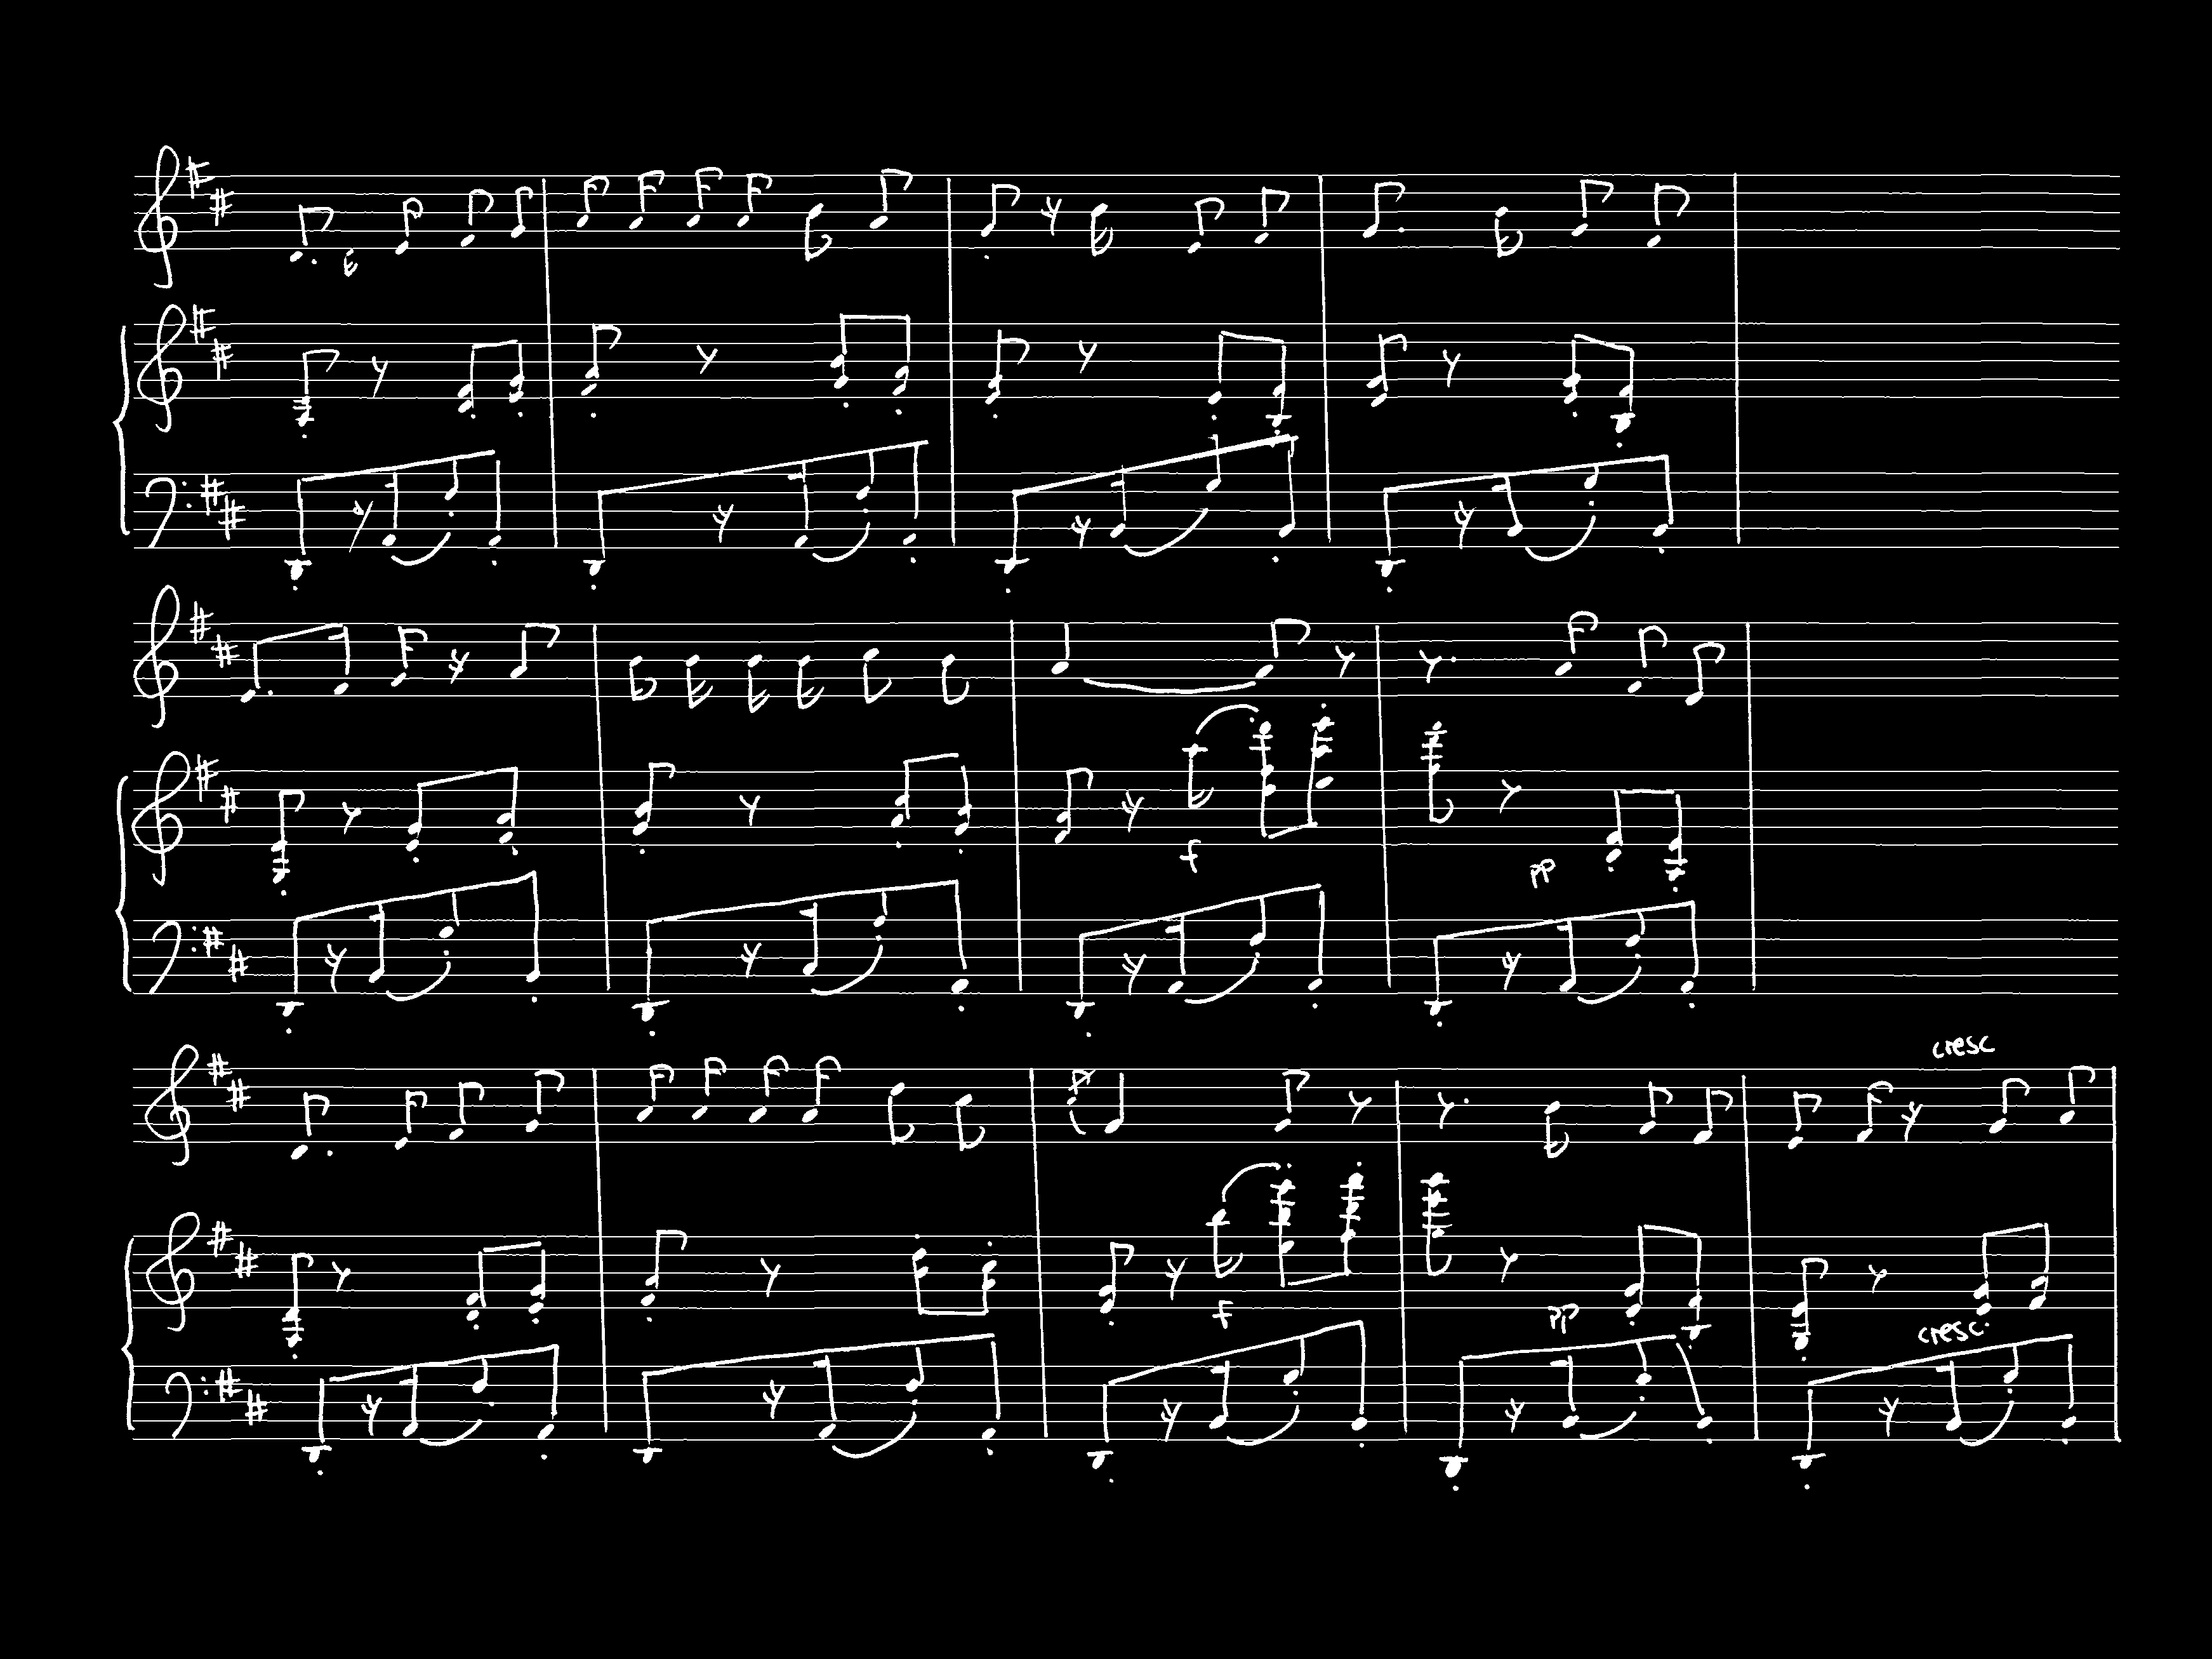 f
pp
cresc
f
pp
cresc.